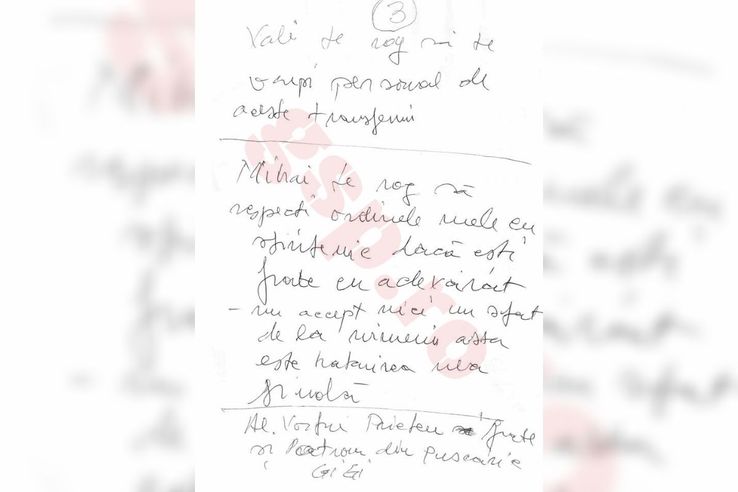 3
Vali te rog să te
ocupi personal de
aceste transferuri
Mihai te rog să
respecti ordinele mele cu
strictețe dacă ești
frate cu adevărat
- nu accept nici un sfat
de la nimeni asta
este hotărirea mea
finală
Al. Vostru Prieten frate
si Patron din puscarie
GiGi
gsp.ro